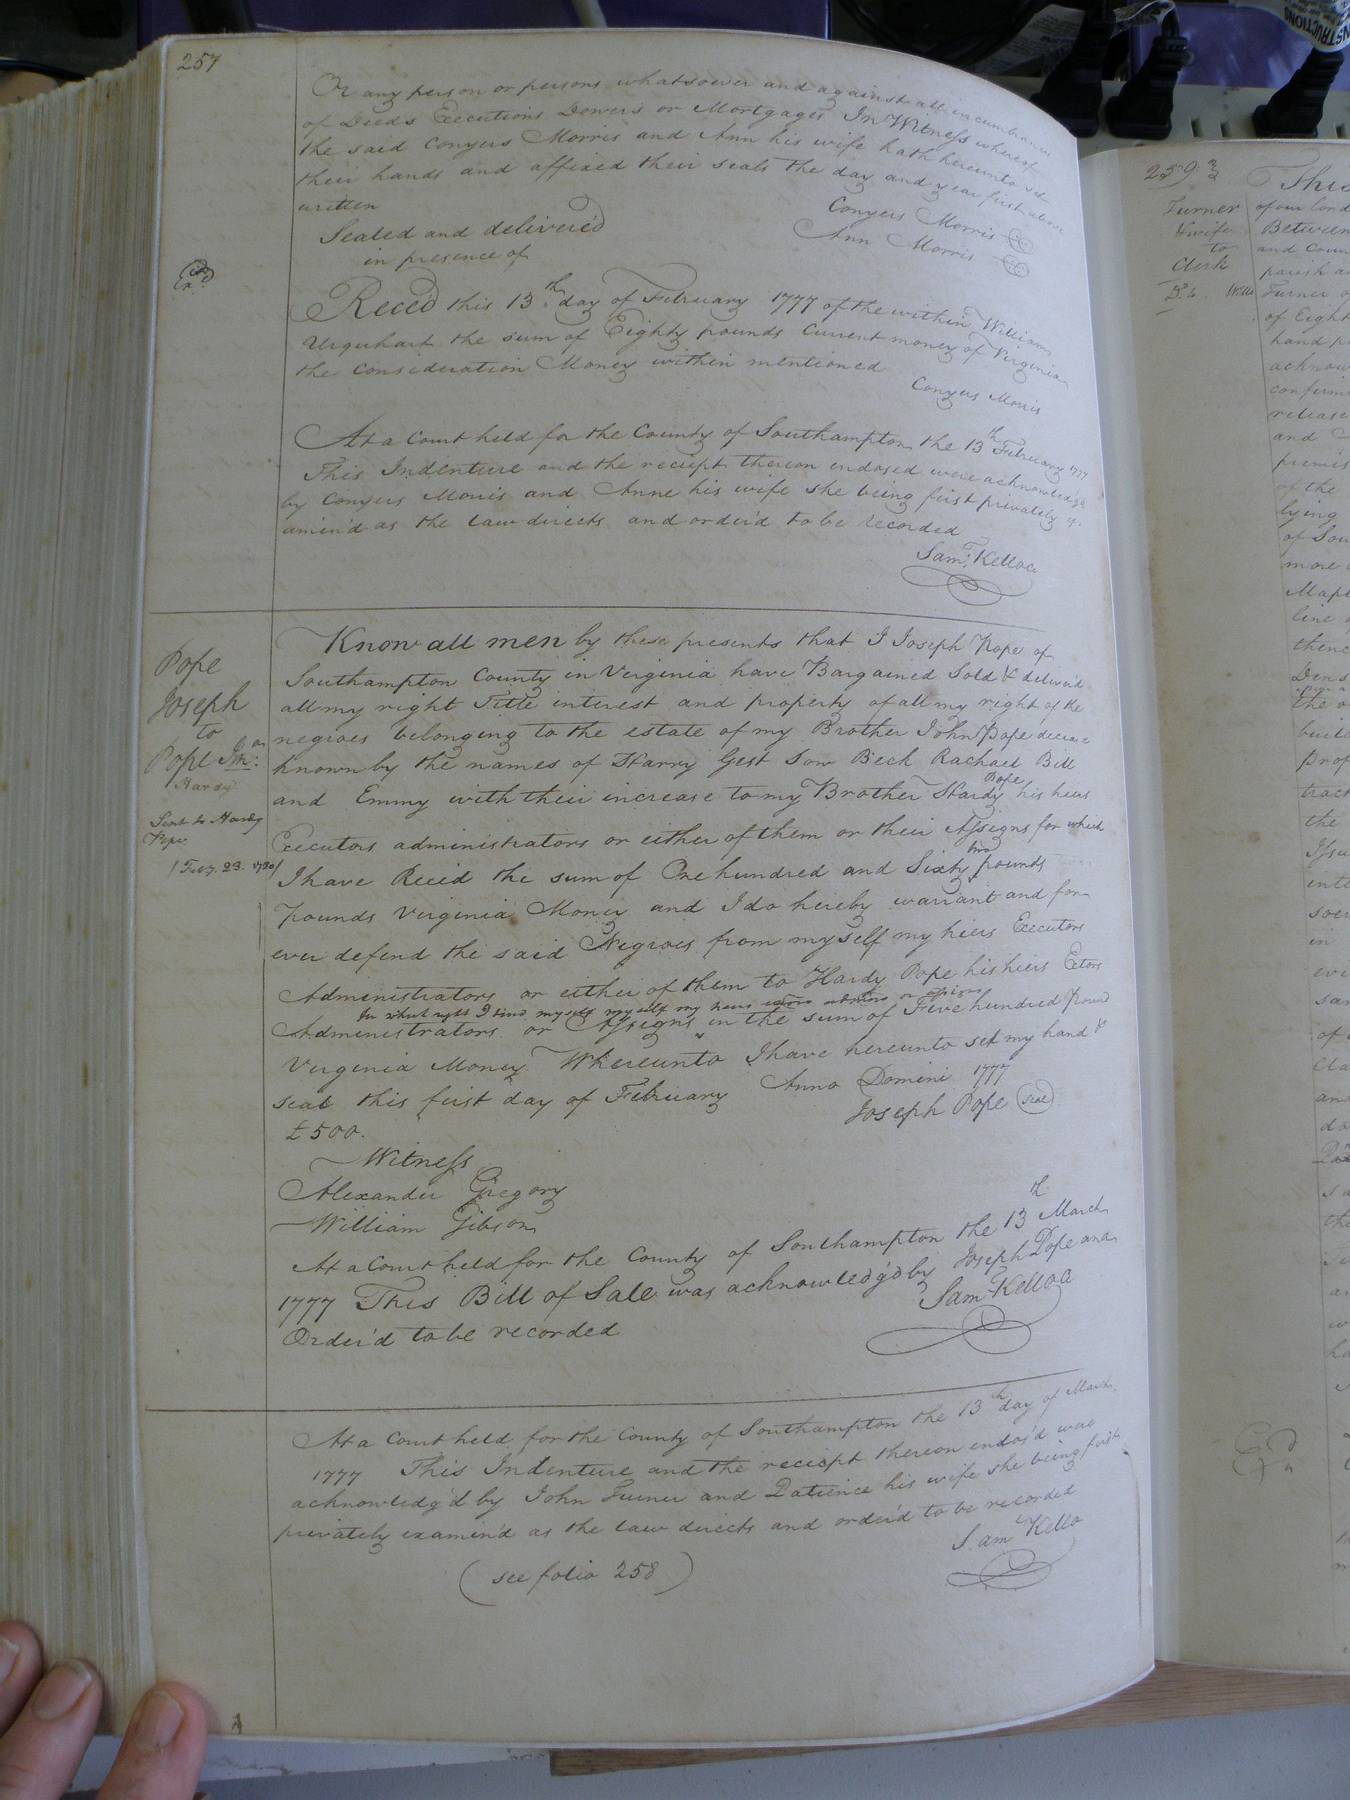 257
Or any person or persons whatsoever and against all incumbrances
of Deeds Executions Dowers or Mortgages In Witness whereof
the said Conyers Morris and Ann his wife hath hereunto set
their hands and affixed their seals the day and year first above
written
Conyers Morris
Sealed and delivered
Ann Morris
in presence of
Exd
Receed this 13th day of February 1777 of the within William
Urquhart the sum of Eighty pounds Current money of Virginia
the Consideration Money within mentioned
Conyers Morris
At a Court held for the County of Southampton the 13th February 1777
This Indenture and the reciept thereon endosed were acknowledg'd
by Conyers Morris and Anne his wife she being first privately ex-
amin'd as the law directs and order'd to be recorded
Sam. Kelloe
Pope
Joseph
to
Pope
Hardy
Sent to Hardy
Pope
1 Feby. 23. 1780
Know all men by these presents that I Joseph Pope of
Southampton County in Virginia have Bargained Sold & deliver'd
all my right Title interest and property of all my right of the
negroes belonging to the estate of my Brother John Pope decease
known by the names of Harry Gest Dow Beck Rachael Bill
and Emmy with their increase to my Brother Hardy Pope his heirs
Executors administrators or either of them or their Assigns for which
I have Receid the sum of One hundred and Sixty two pounds
pounds Virginia Money and I do hereby warrant and for
ever defend the said Negroes from myself my hiers Executors
Administrators or either of them to Hardy Pope his hiers Extors
In what right I bind myself my self my heirs extors admors or assigns
Administrators or Assigns in the sum of Five hundred Pound
Virginia Money Whereunto I have hereunto set my hand &
seal this first day of February Anno Domini 1777
Joseph Pope (seal)
£500.
Witness
Alexander Gregory
William Gibson
At a Court held for the County of Southampton the 13th March
1777 This Bill of Sale was acknowledg'd by Joseph Pope and
Order'd to be recorded
Sam Kelloe
At a Court held for the County of Southampton the 13th day of March
1777 This Indenture and the reciept thereon endos'd were
acknowledg'd by John Turner and Patience his wife she being first
privately examin'd as the law directs and order'd to be recorded
Sam Kello
(see folio 258)
259
Turner
& wife
to
Clerk
This
of our Lord
Between
and Coun
parish a
Turner o
of Eight
hand p
acknow
confirm
release
and
premis
of the
lying
of Sou
more
Mapl
line
thenc
Dens
the
INSTRUCTIONS